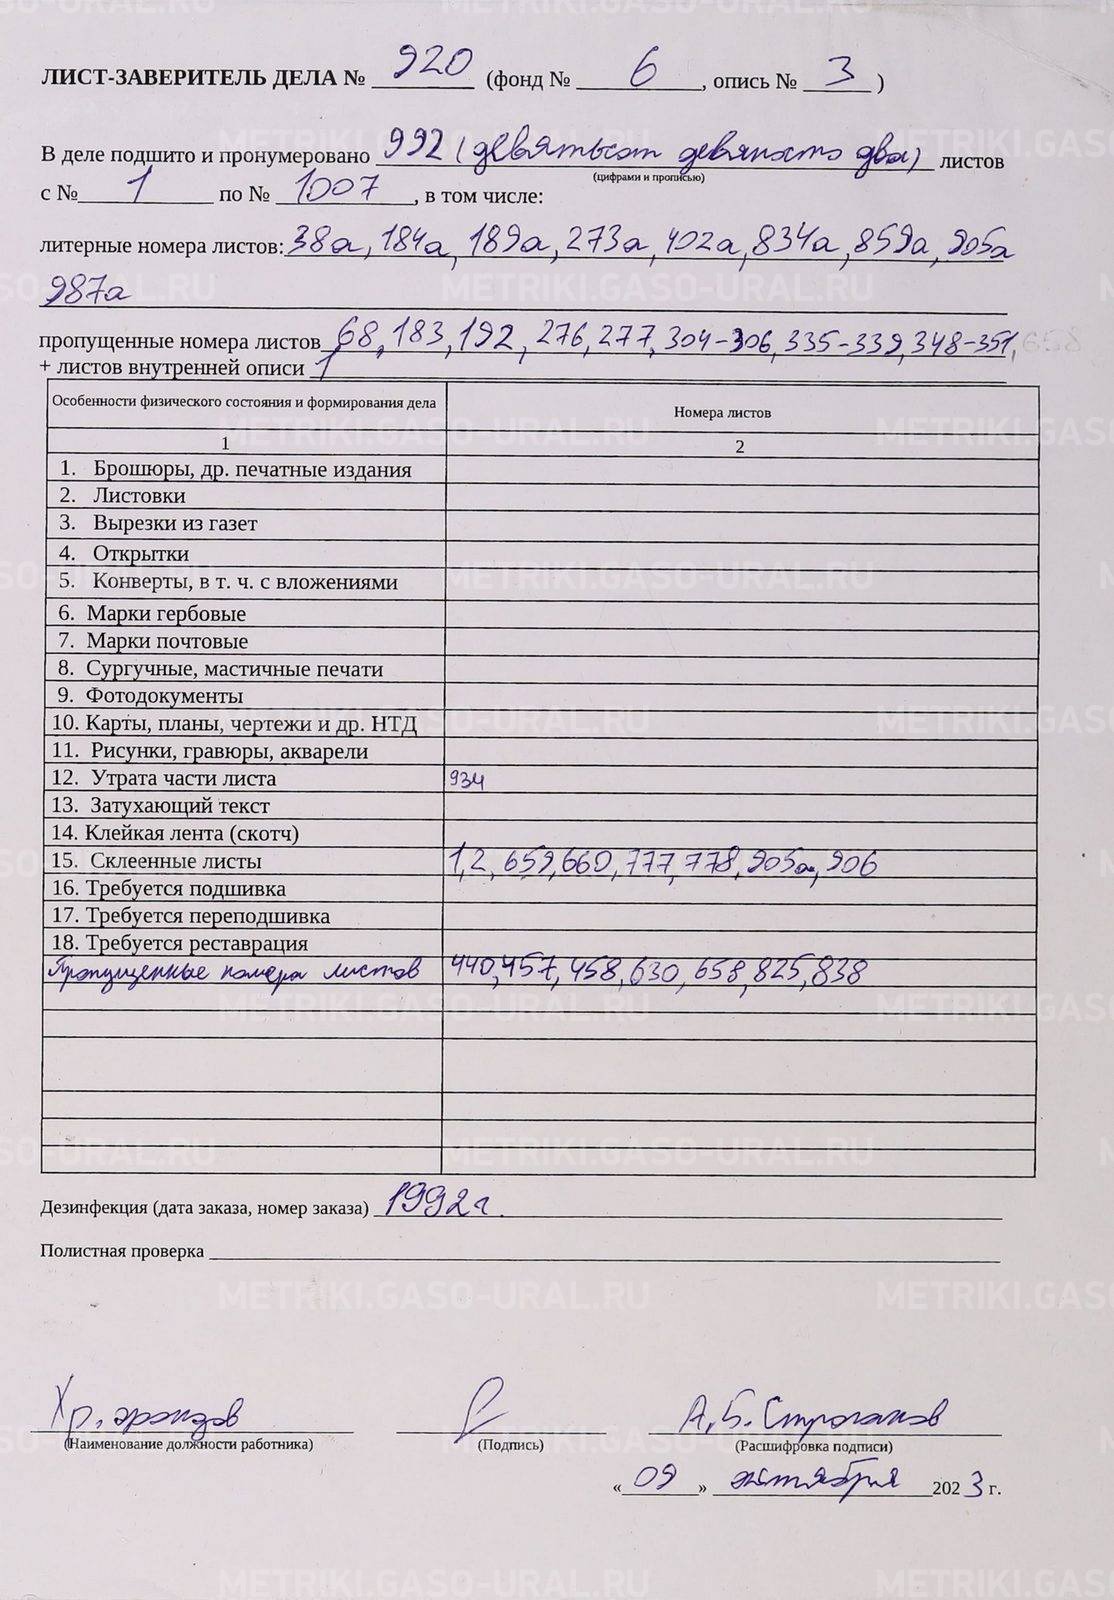 ЛИСТ-ЗАВЕРИТЕЛЬ ДЕЛА № 920 (фонд № 6, опись № 3)
В деле подшито и пронумеровано 992 (девятьсот девяносто два) листов
(цифрами и прописью)
с № 1 по № 1007, в том числе:
литерные номера листов: 38а, 184а, 189а, 273а, 402а, 834а, 859а, 905а
987а
пропущенные номера листов 68, 183, 192, 276, 277, 304-306, 335-339, 348-351, 658
+ листов внутренней описи 1
Особенности физического состояния и формирования дела Номера листов
1 2
1. Брошюры, др. печатные издания
2. Листовки
3. Вырезки из газет
4. Открытки
5. Конверты, в т. ч. с вложениями
6. Марки гербовые
7. Марки почтовые
8. Сургучные, мастичные печати
9. Фотодокументы
10. Карты, планы, чертежи и др. НТД
11. Рисунки, гравюры, акварели
12. Утрата части листа 934
13. Затухающий текст
14. Клейкая лента (скотч)
15. Склеенные листы 1, 2, 659, 660, 777, 778, 905а, 906
16. Требуется подшивка
17. Требуется переподшивка
18. Требуется реставрация
Пропущенные номера листов 440, 457, 458, 630, 658, 825, 838
Дезинфекция (дата заказа, номер заказа) 1992г.
Полистная проверка
Хр. фондов А.Б. Строганов
(Наименование должности работника) (Подпись) (Расшифровка подписи)
«09» октября 2023 г.
METRIKI.GASO-URAL.RU